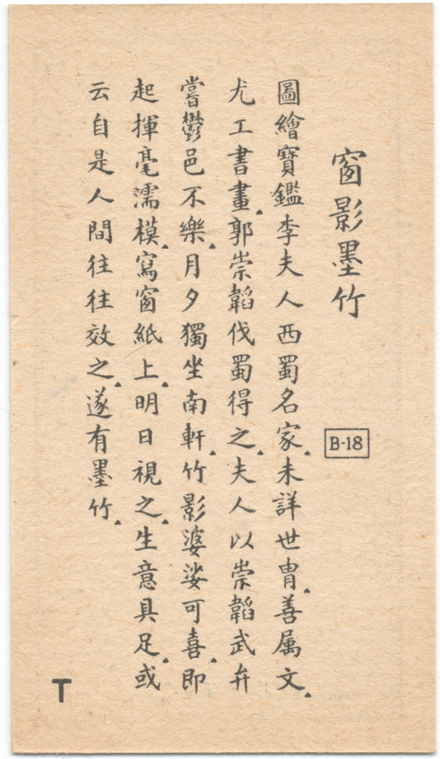 窗影墨竹
B-18
圖繪寶鑑李夫人西蜀名家.未詳世胄.善属文.
尤工書畫.郭崇韜伐蜀得之.夫人以崇韜武弁
嘗鬱邑不樂.月夕獨坐南軒.竹影婆娑可喜.即
起揮毫濡模.寫窗紙上.明日視之.生意具足.或
云自是人間往往效之.遂有墨竹.
T